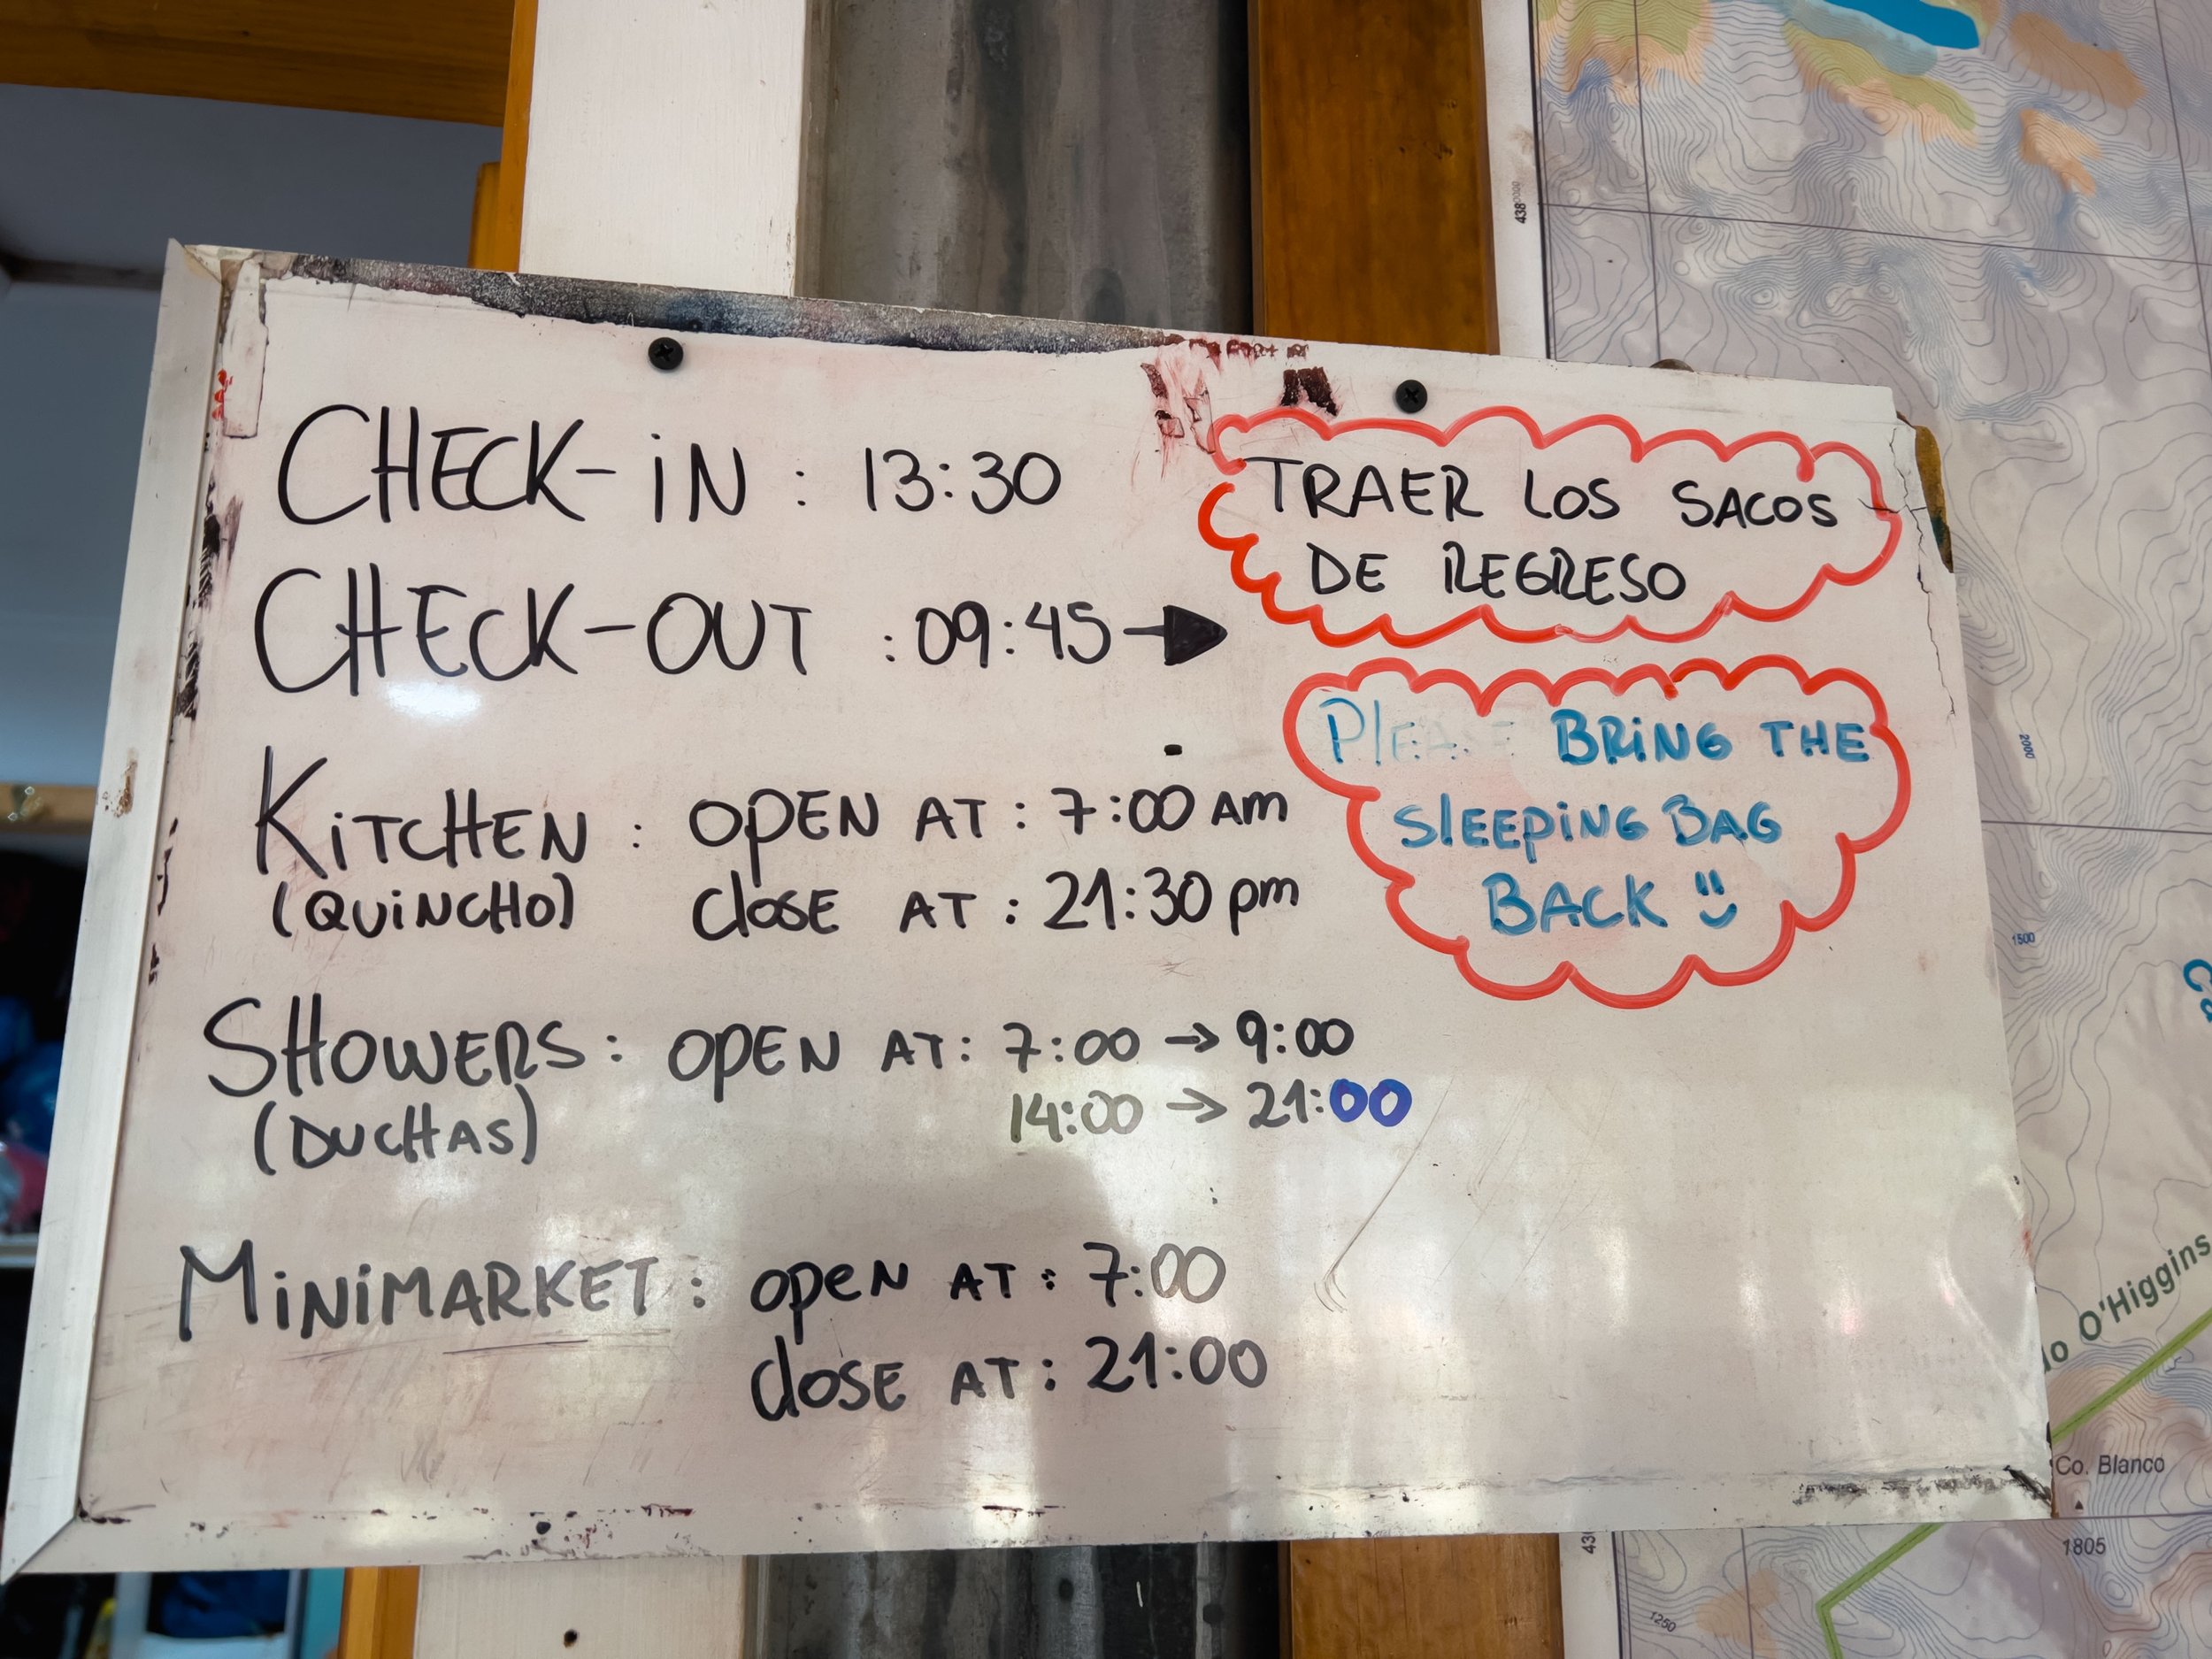 CHECK-iN : 13:30
CHECK-OUT : 09:45
KiTCHEN : OPEN AT : 7:00 Am
(QUiNCHO) close AT : 21:30 pm
SHOWERS : OPEN AT: 7:00 → 9:00
(DUCHAS) 14:00 → 21:00
MiNiMARKET : open AT : 7:00
close AT : 21:00
TRAER LOS SACOS
DE REGRESO
PlEASE BRiNG THE
SlEEPiNG BAG
BACK
438
2000
1500
O'Higgins
Co. Blanco
1805
1250